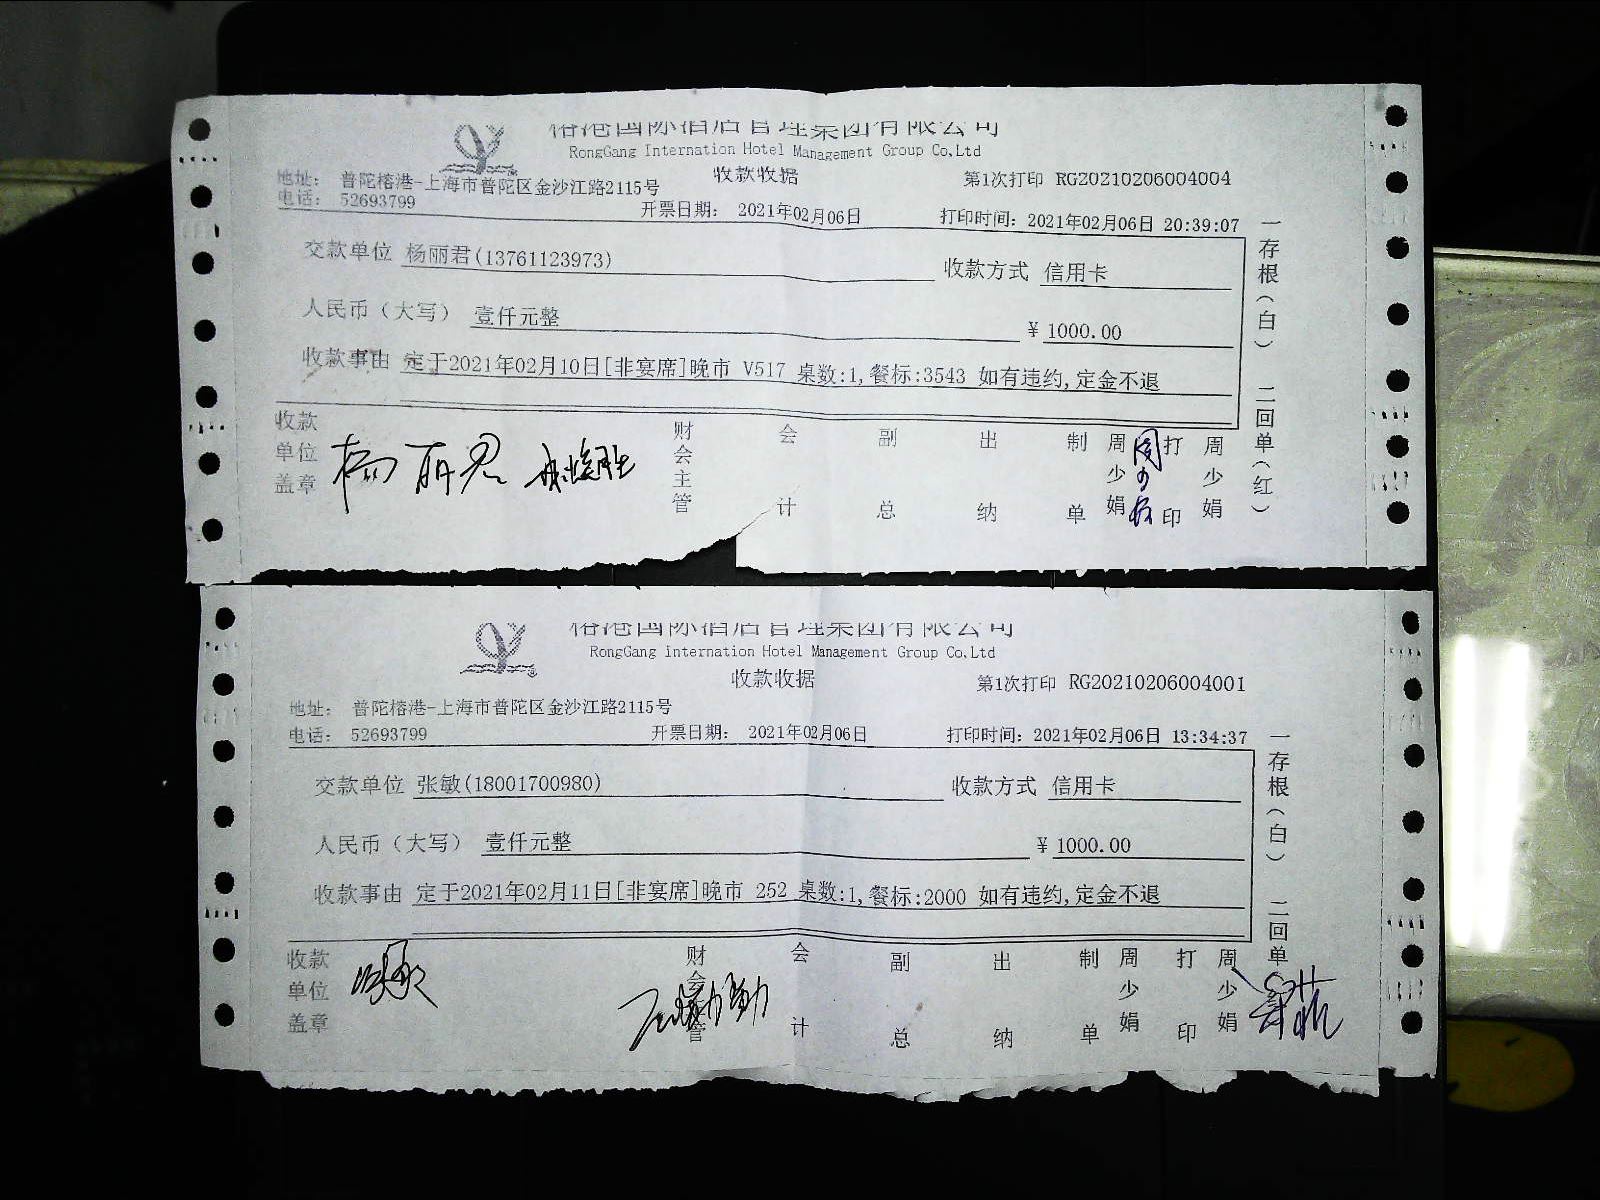 榕港国际酒店管理集团有限公司
RongGang Internation Hotel Management Group Co,Ltd
收款收据
第1次打印 RG20210206004004
地址： 普陀榕港-上海市普陀区金沙江路2115号
电话： 52693799
开票日期： 2021年02月06日
打印时间：2021年02月06日 20:39:07
交款单位 杨丽君(13761123973)
收款方式 信用卡
人民币（大写） 壹仟元整
¥ 1000.00
收款事由 定于2021年02月10日[非宴席]晚市 V517 桌数:1,餐标:3543 如有违约,定金不退
一存根（白） 二回单（红）
收款单位盖章
杨丽君
财会主管
会计
副总
出纳
制单
周少娟
周少娟
打印
周少娟
榕港国际酒店管理集团有限公司
RongGang Internation Hotel Management Group Co,Ltd
收款收据
第1次打印 RG20210206004001
地址： 普陀榕港-上海市普陀区金沙江路2115号
电话： 52693799
开票日期： 2021年02月06日
打印时间：2021年02月06日 13:34:37
交款单位 张敏(18001700980)
收款方式 信用卡
人民币（大写） 壹仟元整
¥ 1000.00
收款事由 定于2021年02月11日[非宴席]晚市 252 桌数:1,餐标:2000 如有违约,定金不退
一存根（白） 二回单
收款单位盖章
财会主管
会计
副总
出纳
制单
周少娟
打印
周少娟